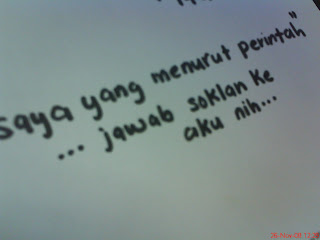 saya yang menurut perintah"
... jawab soklan ke
aku nih...